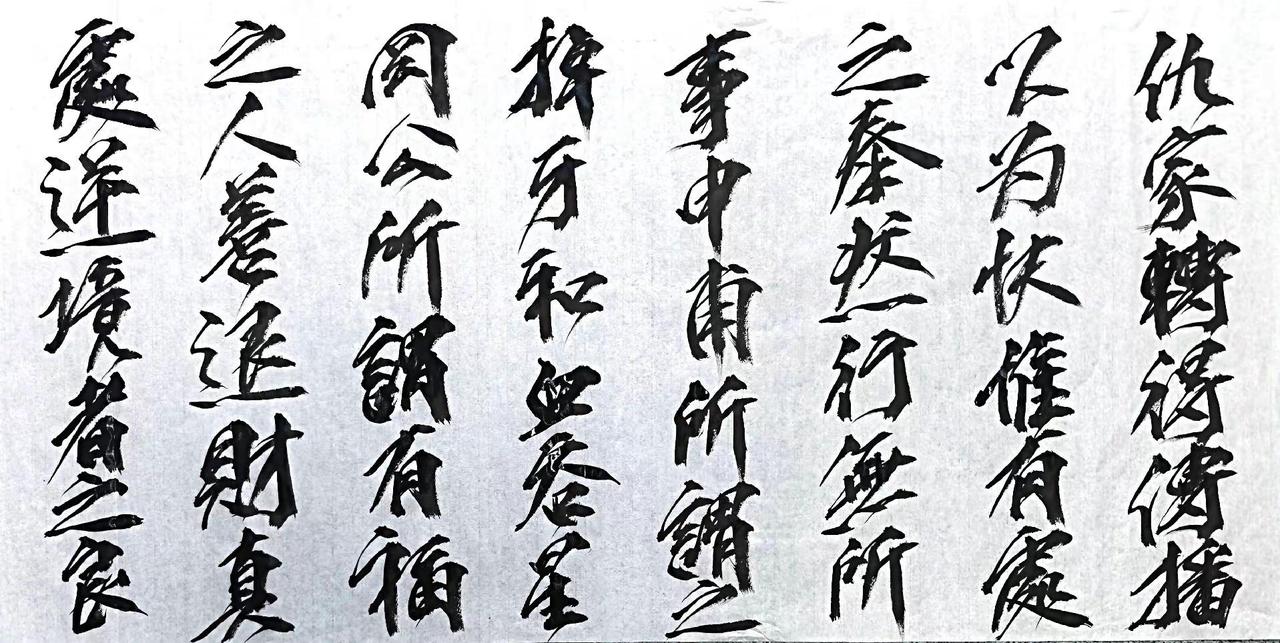 仇家轉得傳播
以为快惟有處
之泰然行無所
事中甫所謂之
牙和血吞星
岡公所謂有福
之人善退財真
處逆境者之良